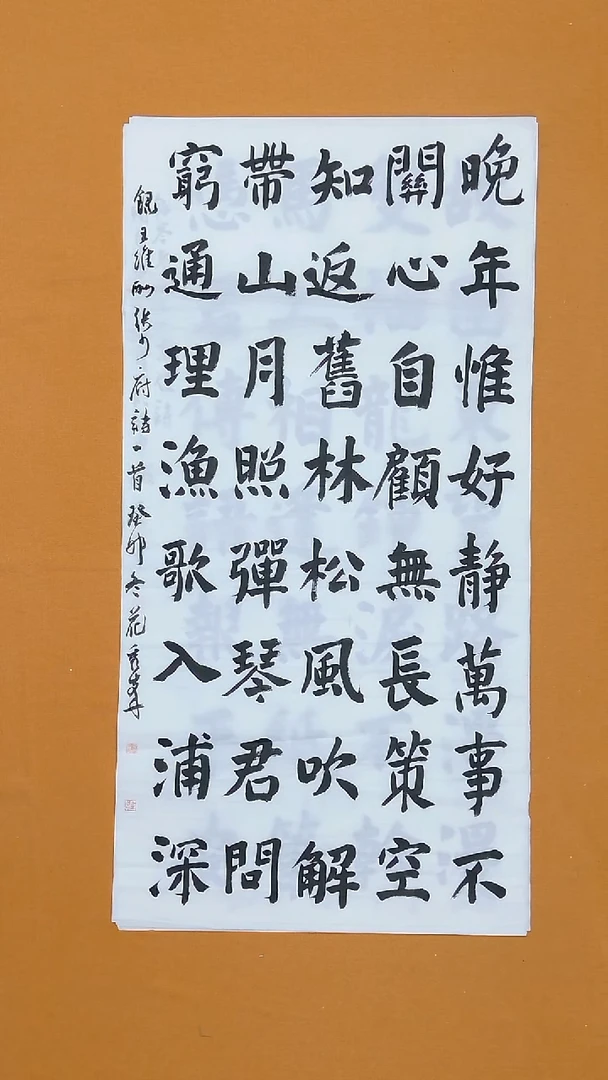 晚年惟好静萬事不
關心自顧無長策空
知返舊林松風吹解
帶山月照彈琴君問
窮通理漁歌入浦深
王維酬張少府詩一首癸卯冬范秀峯